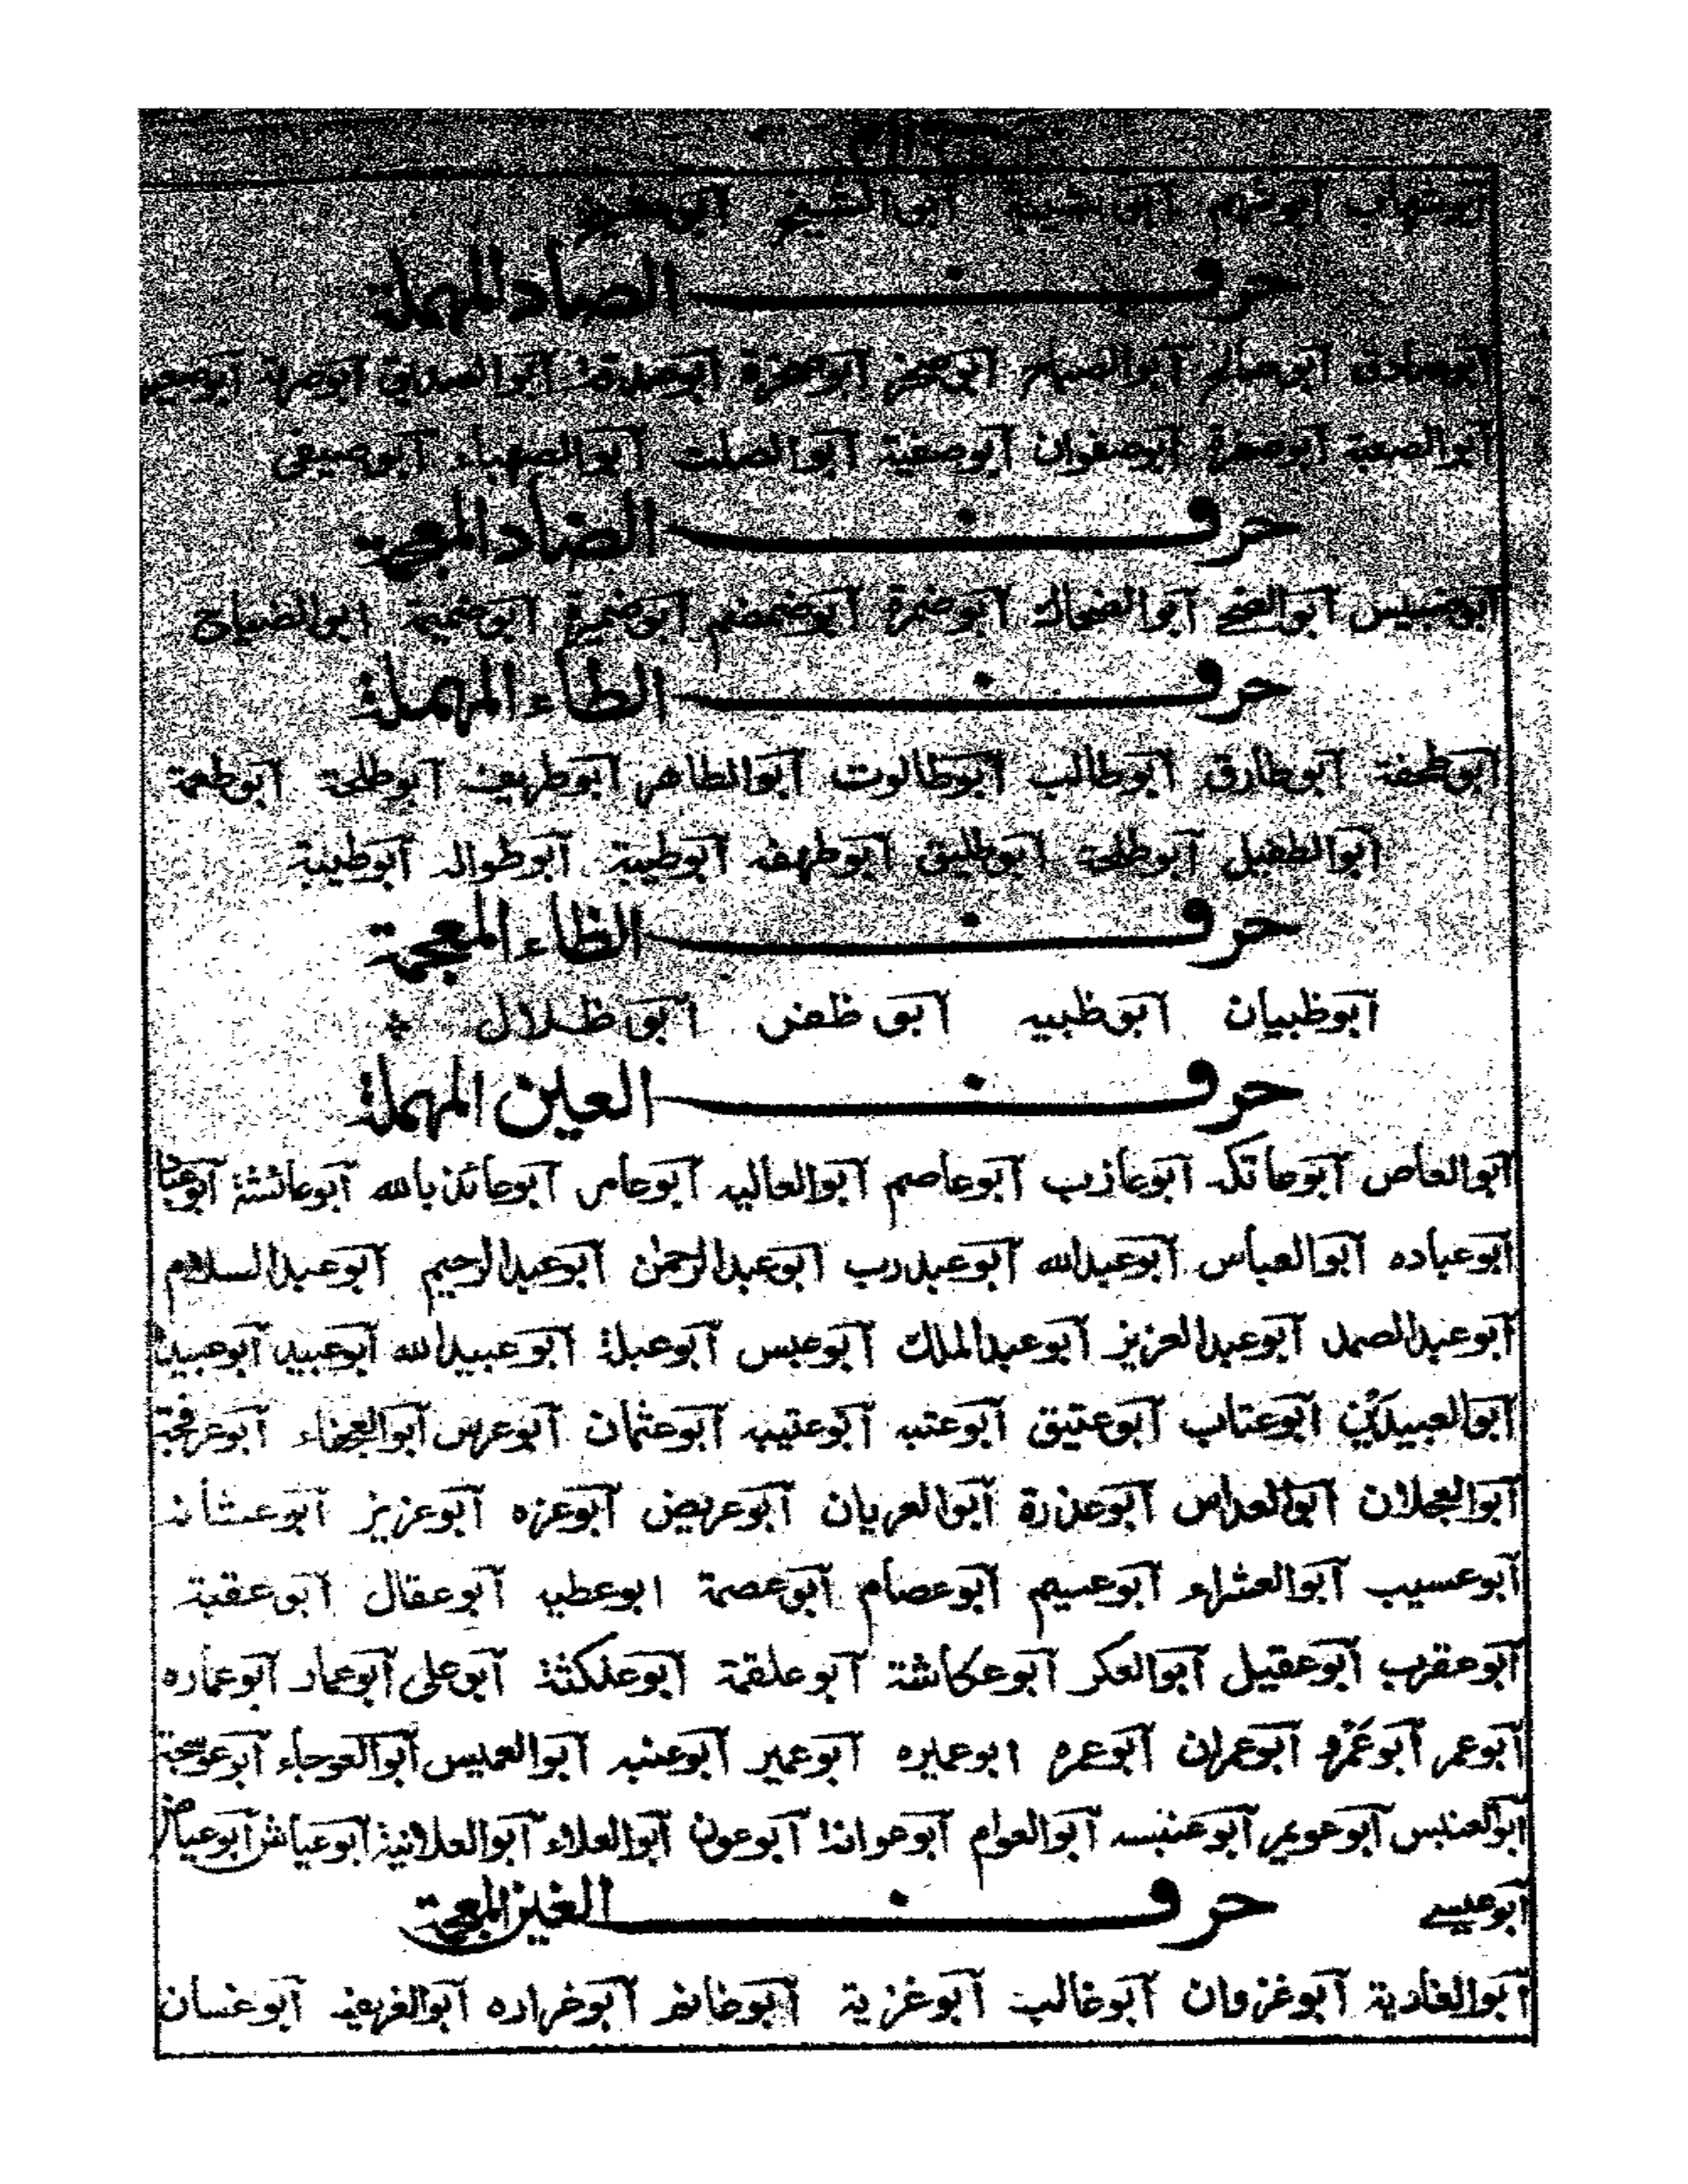 ابوشهاب ابوشهم ابوشيبة ابوالشيخ ابوشيخ
حرف الصاد المهملة
ابوصادق ابوصالح ابوالصباح ابوصخر ابوصخرة ابوصدقة ابوالصديق ابوصرمة
ابوالصعبة ابوصفرة ابوصفوان ابوصفية ابوالصلت ابوالصهباء ابوصيفى
حرف الضاد المعجمة
ابوضبيس ابوالضحى ابوالضحاك ابوضمرة ابوضمضم ابوضميرة ابوضميمة ابوالضياح
حرف الطاء المهملة
ابوطخفة ابوطارق ابوطالب ابوطالوت ابوالطاهر ابوطريف ابوطلحة ابوطعمة
ابوالطفيل ابوطلحة ابوطليق ابوطهفه ابوطيبة ابوطواله ابوطيبة
حرف الظاء المعجمة
ابوظبيان ابوظبيه ابوظفر ابوظلال
حرف العين المهملة
ابوالعاص ابوعاتكه ابوعازب ابوعاصم ابوالعاليه ابوعامر ابوعائذبالله ابوعائشة ابوعباد
ابوعباده ابوالعباس ابوعبدالله ابوعبدرب ابوعبدالرحمن ابوعبدالرحيم ابوعبدالسلام
ابوعبدالصمد ابوعبدالعزيز ابوعبدالملك ابوعبس ابوعبلة ابوعبيدالله ابوعبيد ابوعبيدة
ابوالعبيدَيْن ابوعتاب ابوعتيق ابوعتبه ابوعتيبه ابوعثمان ابوعرس ابوالعجفاء ابوعرفجة
ابوالعجلان ابوالعداس ابوعذرة ابوالعريان ابوعريض ابوعزه ابوعزيز ابوعشانه
ابوعسيب ابوالعشراء ابوعسيم ابوعصام ابوعصمة ابوعطيه ابوعقال ابوعقبة
ابوعقرب ابوعقيل ابوالعكر ابوعكاشة ابوعلقمة ابوعلكثة ابوعلى ابوعمار ابوعماره
ابوعمر ابوعَمْرو ابوعمران ابوعمره ابوعميره ابوعمير ابوعنبه ابوالعميس ابوالعوجاء ابوعوسجة
ابوالعنبس ابوعويمر ابوعنبسه ابوالعوام ابوعوانة ابوعون ابوالعلاء ابوالعلانية ابوعياش ابوعياض
ابوعيسے حرف الغين المعجمة
ابوالغادية ابوغزوان ابوغالب ابوغزية ابوغانم ابوغراره ابوالغريف ابوغسان